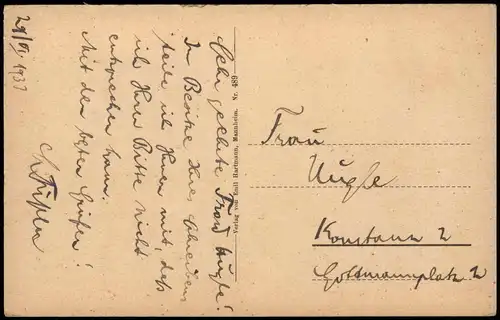 29/VI 1933
Sehr geehrte Frau Nugle!
Im Besitze Ihres Schreibens
teile ich Ihnen mit, daß
ich Ihrer Bitte nicht
entsprechen kann.
Mit den besten Grüßen!
Verlag von Emil Hartmann, Mannheim. Nr. 489
Frau
Nugle
Konstanz 2
Gottmannplatz 2